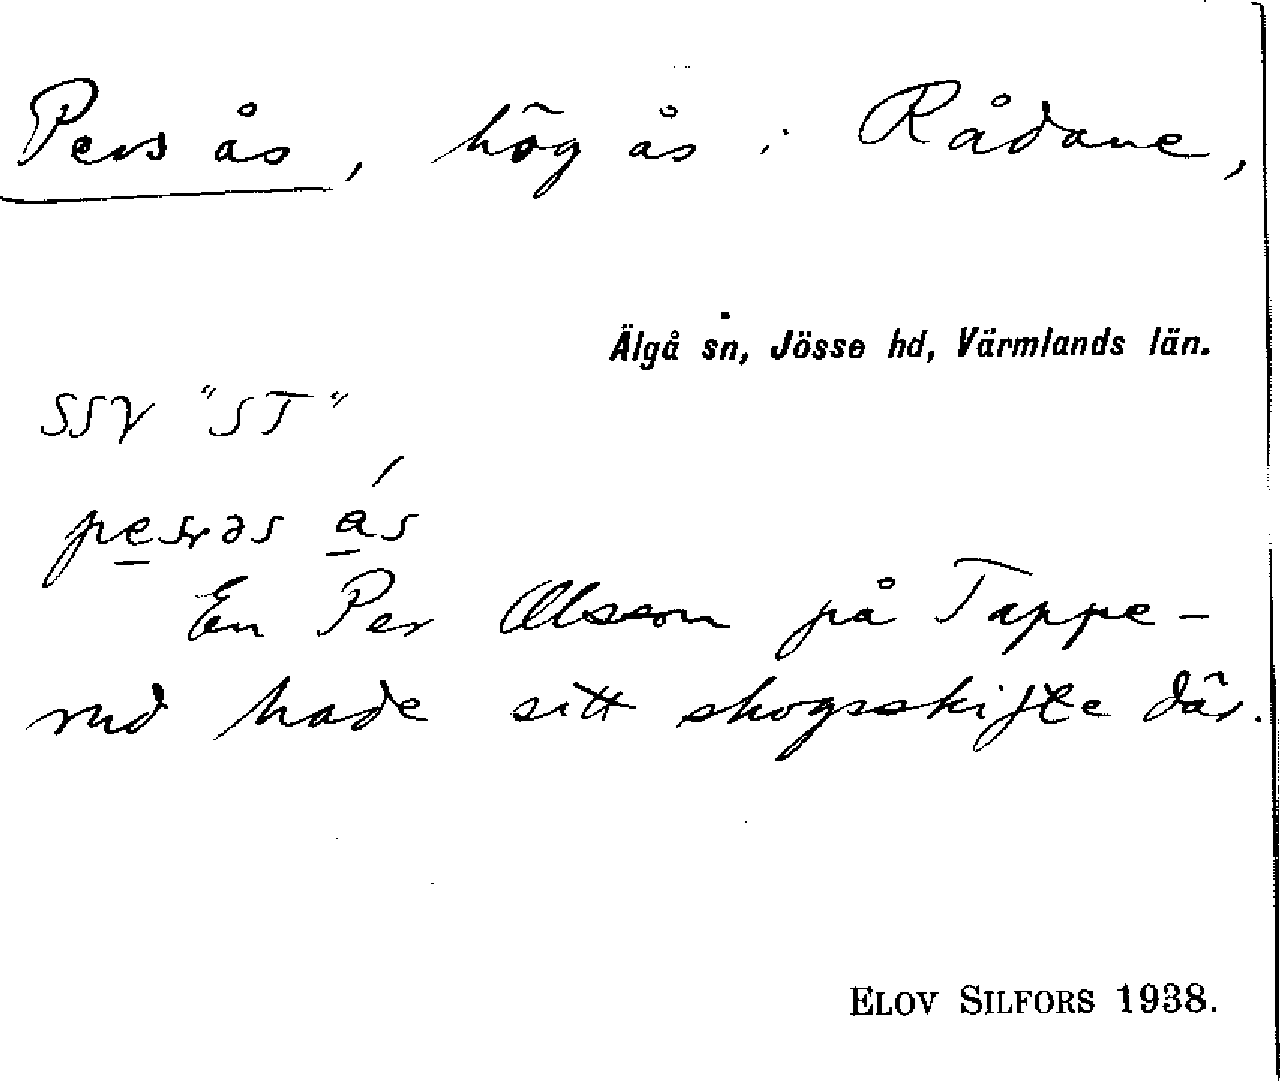 Pers ås, hög ås i Rådane,
Älgå sn, Jösse hd, Värmlands län.
SSV "ST"
ás
En Per Olsson på Tappe-
rud hade sitt skogsskifte där.
ELOV SILFORS 1938.